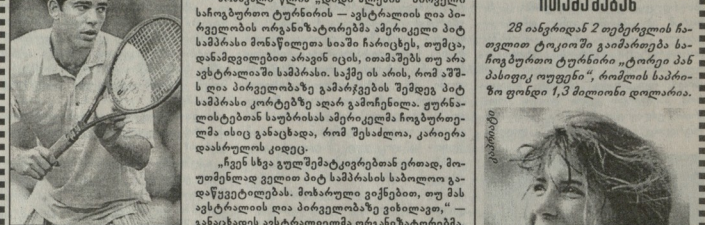 საჩოგბურთო ტურნირის — ავსტრალიის ღია პი-
რველობის ორგანიზატორებმა ამერიკელი პიტ
სამპრასი მონაწილეთა სიაში ჩარიცხეს, თუმცა,
დანამდვილებით არავინ იცის, ითამაშებს თუ არა
ავსტრალიაში სამპრასი. საქმე ის არის, რომ აშშ-
ს ღია პირველობაზე გამარჯვების შემდეგ პიტ
სამპრასი კორტებზე აღარ გამოჩენილა. ჟურნა-
ლისტებთან საუბრისას ამერიკელმა ჩოგბურთე-
ლმა ისიც განაცხადა, რომ შესაძლოა, კარიერა
დაასრულოს კიდეც.
„ჩვენ სხვა გულშემატკივრებთან ერთად, მო-
უთმენლად ველით პიტ სამპრასის საბოლოო გა-
დაწყვეტილებას. მოხარული ვიქნებით, თუ მას
ავსტრალიის ღია პირველობაზე ვიხილავთ,“ —
განაცხადეს ავსტრალიელმა ორგანიზატორებმა.
28 იანვრიდან 2 თებერვლის ჩა-
თვლით ტოკიოში გაიმართება სა-
ჩოგბურთო ტურნირი „ტორეი პან
პასიფიკ ოუფენი“, რომლის საპრი-
ზო ფონდი 1,3 მილიონი დოლარია.